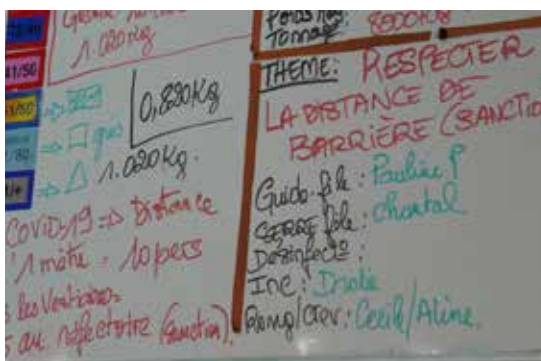 1.020Kg
41/50
0,820Kg
1.020Kg.
COVID-19 => Distance
1 mètre = 10 pers
les Vestiaires
au réfectoire (Sanction).
Tonnage 8000Kg
THEME: RESPECTER
LA DISTANCE DE
BARRIÈRE (SANCTIO
Guide-file : Pauline P
SERRE file : Chantal
Desinfect° :
Ine :
Rang/Crev : Cecile/Aline.